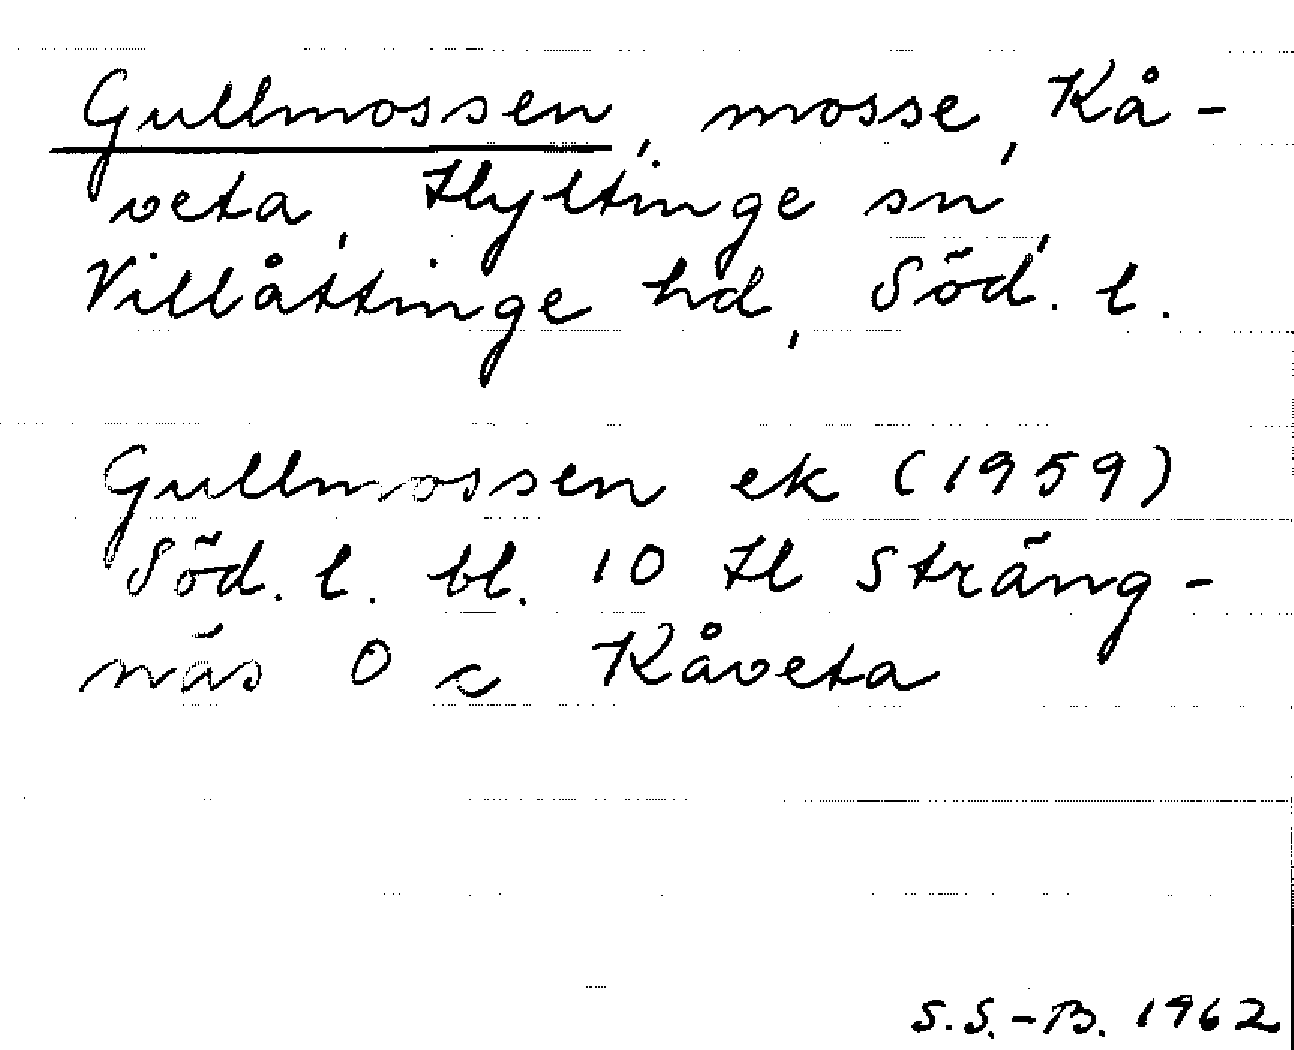 Gullmossen, mosse, Kå-
veta, Hyltinge sn,
Villåttinge hd, Söd. l.
Gullmossen ek (1959)
Söd. l. bl. 10 H Sträng-
näs 0 c Kåveta
S.S.-B. 1962